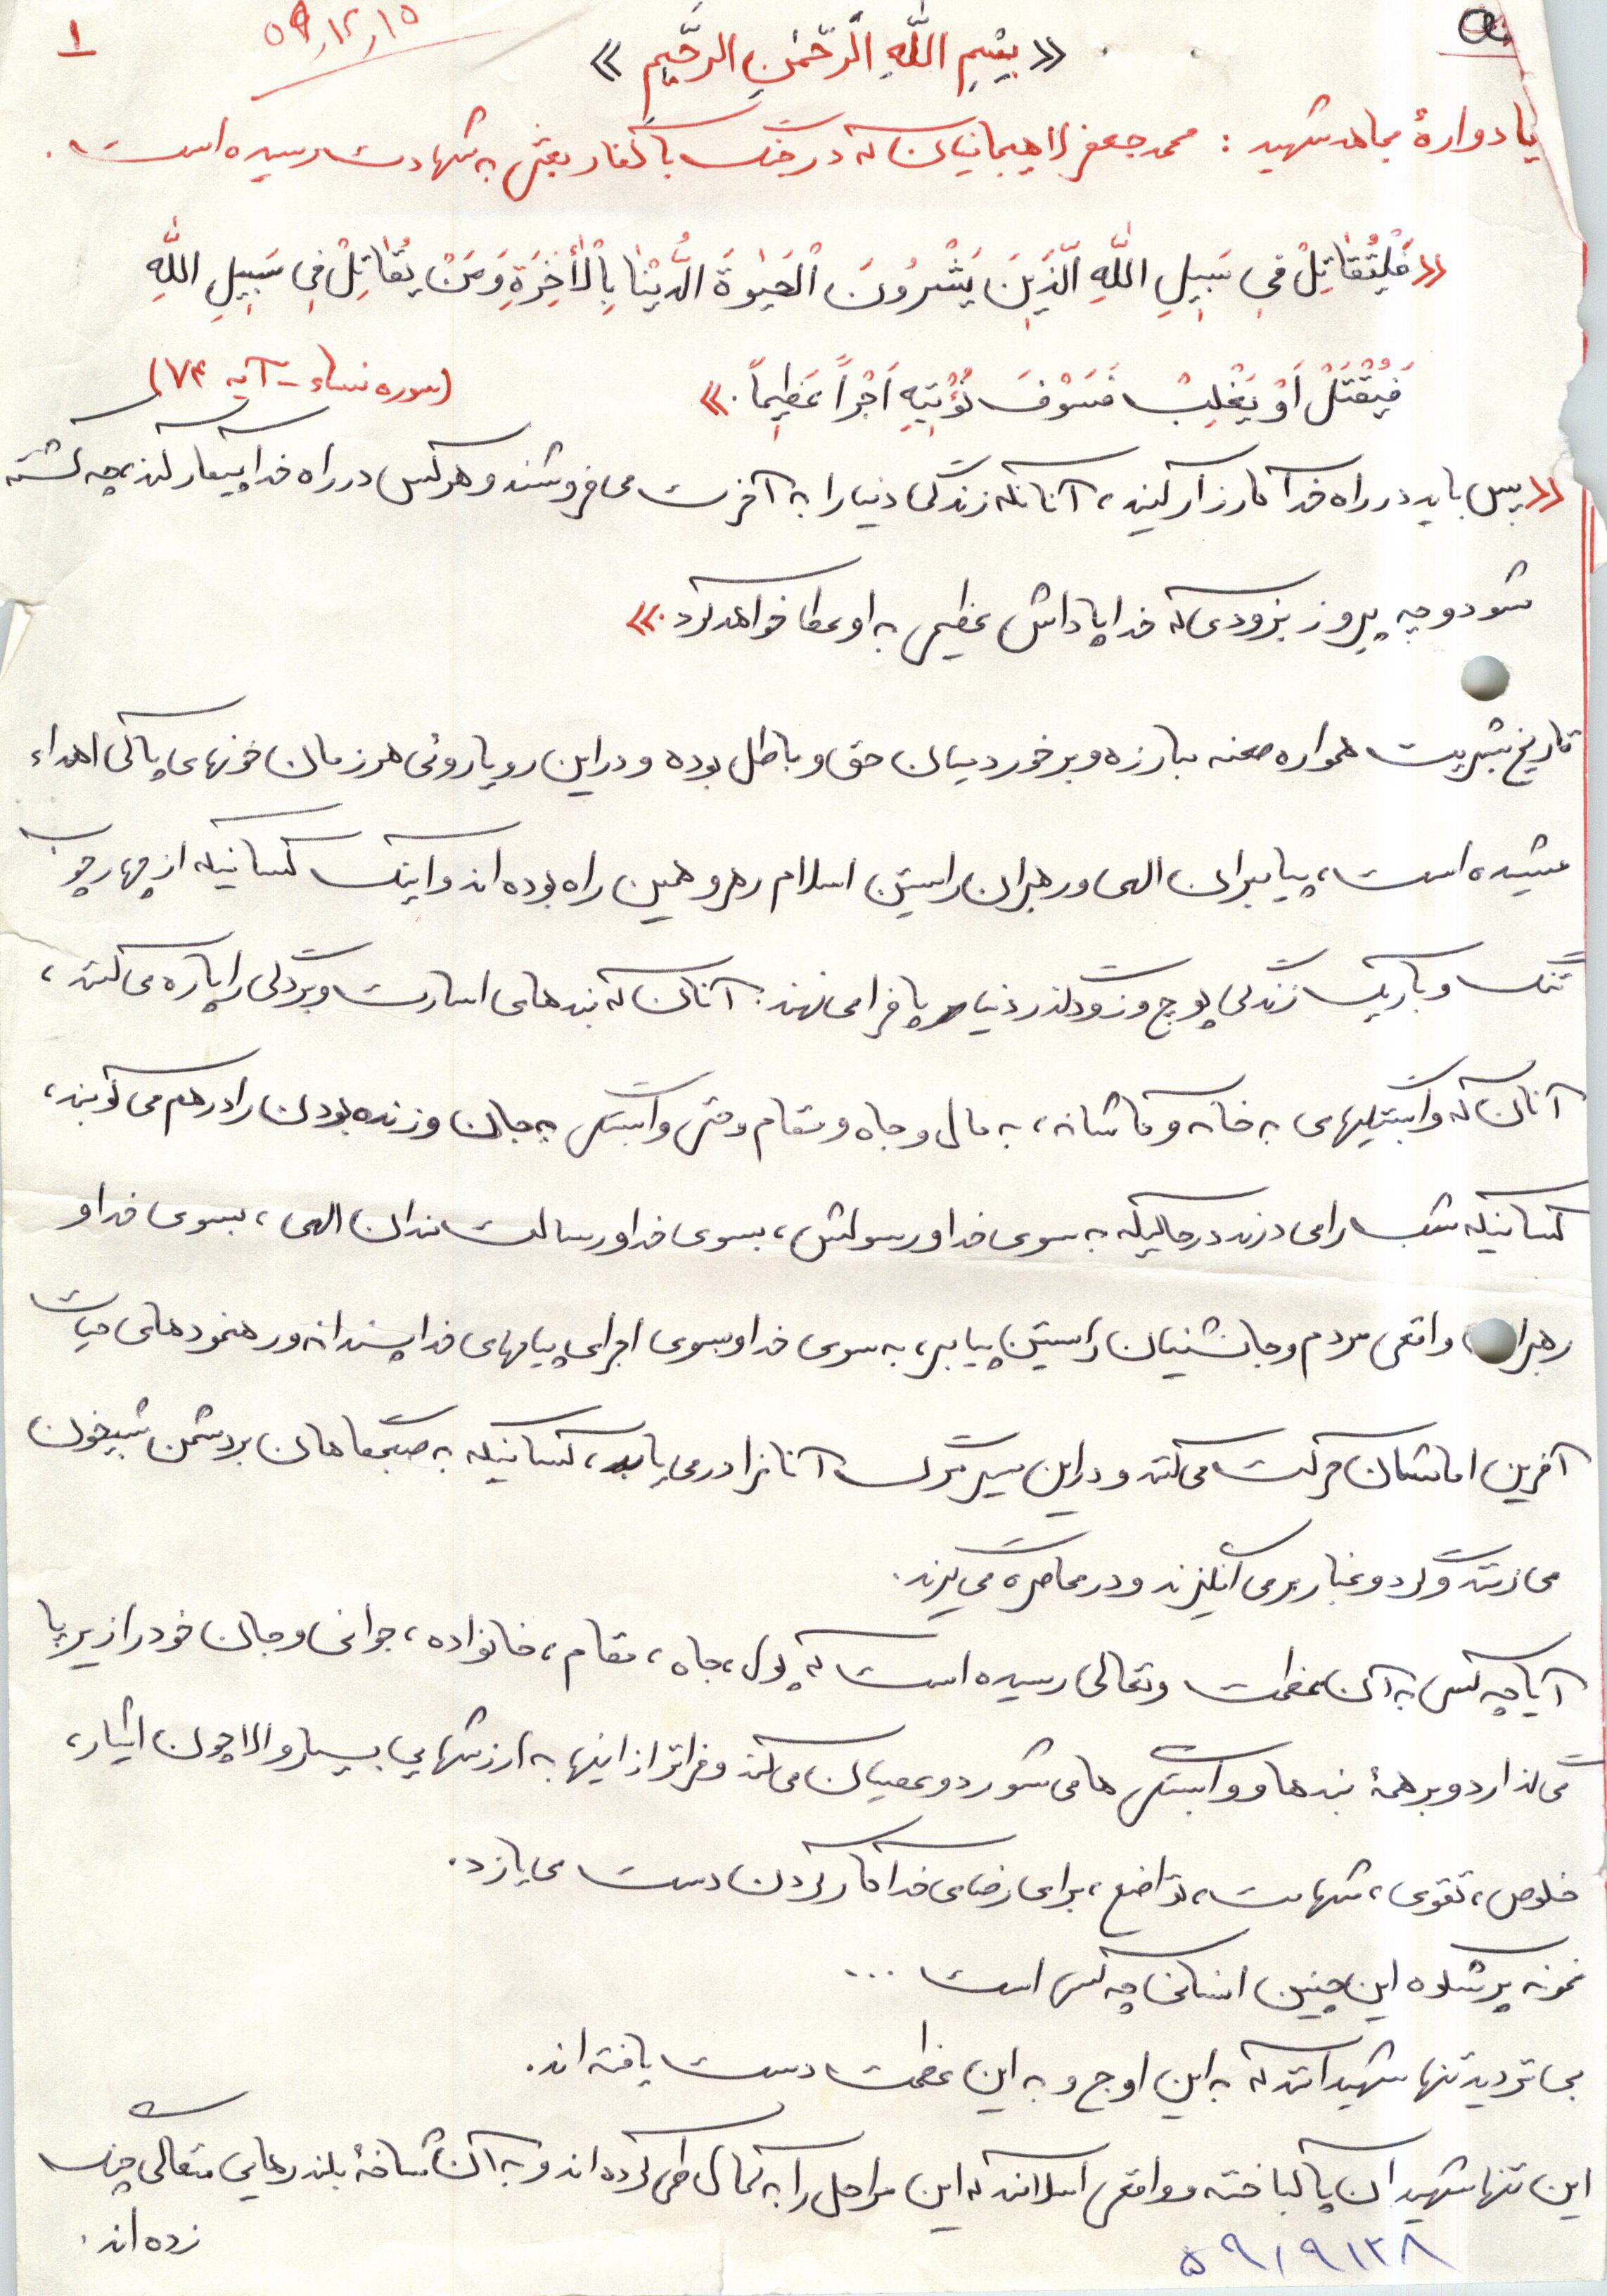 ۱
۵۹٫۱۲٫۱۵
« بِسْمِ اللّٰهِ الرَّحْمٰنِ الرَّحيٖمِ »
یادوارهٔ مجاهد شهید : محمد جعفر لاهیجانیان که در جنگ با کفار بعثی به شهادت رسیده است .
«فَلْيُقٰاتِلْ فىٖ سَبيٖلِ اللّٰهِ الَّذيٖنَ يَشْرُونَ الْحَيٰوةَ الدُّنْيٰا بِالْأٰخِرَةِ وَ مَنْ يُقٰاتِلْ فىٖ سَبيٖلِ اللّٰهِ
فَيُقْتَلْ اَوْ يَغْلِبْ فَسَوْفَ نُؤْتيٖهِ اَجْراً عَظيٖماً .»
(سوره نساء - آیه ۷۴)
«پس باید در راه خدا کارزار کنند ، آنانکه زندگی دنیا را به آخرت می فروشند و هر کس در راه خدا پیکار کند چه کشته
شود و چه پیروز بزودی که خدا پاداش عظیمی به او عطا خواهد کرد .»
تاریخ بشریت همواره صحنه مبارزه و برخورد میان حق و باطل بوده و در این رویاروئی هر زمان خونهای پاکی اهداء
میشده است ، پیامبران الهی و رهبران راستین اسلام رهرو همین راه بوده اند و اینک کسانیکه از چهارچوب
تنگ و باریک زندگی پوچ و زودگذر دنیا پا فرا می نهند : آنان که بندهای اسارت و بردگی را پاره می کنند ،
آنان که وابستگیهای به خانه و کاشانه ، به مال و جاه و مقام و حتی وابستگی به جان و زنده بودن را در هم می کوبند ،
کسانیکه شب را می درند در حالیکه به سوی خدا و رسولش ، بسوی خدا و رسالت مندان الهی ، بسوی خدا و
رهبران واقعی مردم و جانشینان راستین پیامبر ، به سوی خدا و بسوی اجرای پیامهای خدا پسندانه و رهنمودهای حیات
آفرین امامشان حرکت می کنند و در این مسیر مرگ آنانرا در می یابد ، کسانیکه به صبحگاهان بر دشمن شبیخون
می زنند و گرد و غبار بر می انگیزند و در محاصره می گیرند .
آیا چه کسی به آن عظمت و تعالی رسیده است که پول ، جاه ، مقام ، خانواده ، جوانی و جان خود را زیر پا
می گذارد و بر همهٔ بندها و وابستگی ها می شورد و عصیان می کند و فراتر از اینها به ارزشهایی بسیار والا چون ایثار ،
خلوص ، تقوی ، شهامت ، تواضع ، برای رضای خدا کار کردن دست می یازد .
نمونه پرشکوه این چنین انسانی چه کسی است ...
بی تردید تنها شهیدانند که به این اوج و به این عظمت دست یافته اند .
این تنها شهیدان پاکباخته و واقعی اسلامند که این مراحل را به کمال طی کرده اند و به آن شاخهٔ بلند رهایی متعالی چنگ
زده اند .
۵۹/۹/۲۸